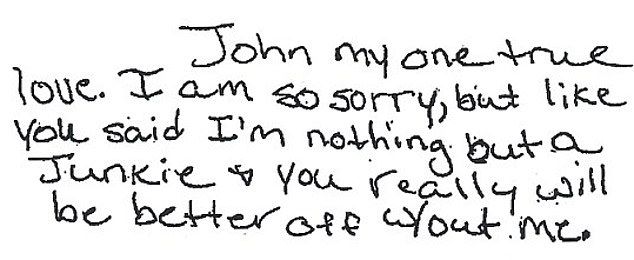 John my one true
love. I am so sorry, but like
you said I'm nothing but a
Junkie & you really will
be better off w/out me.